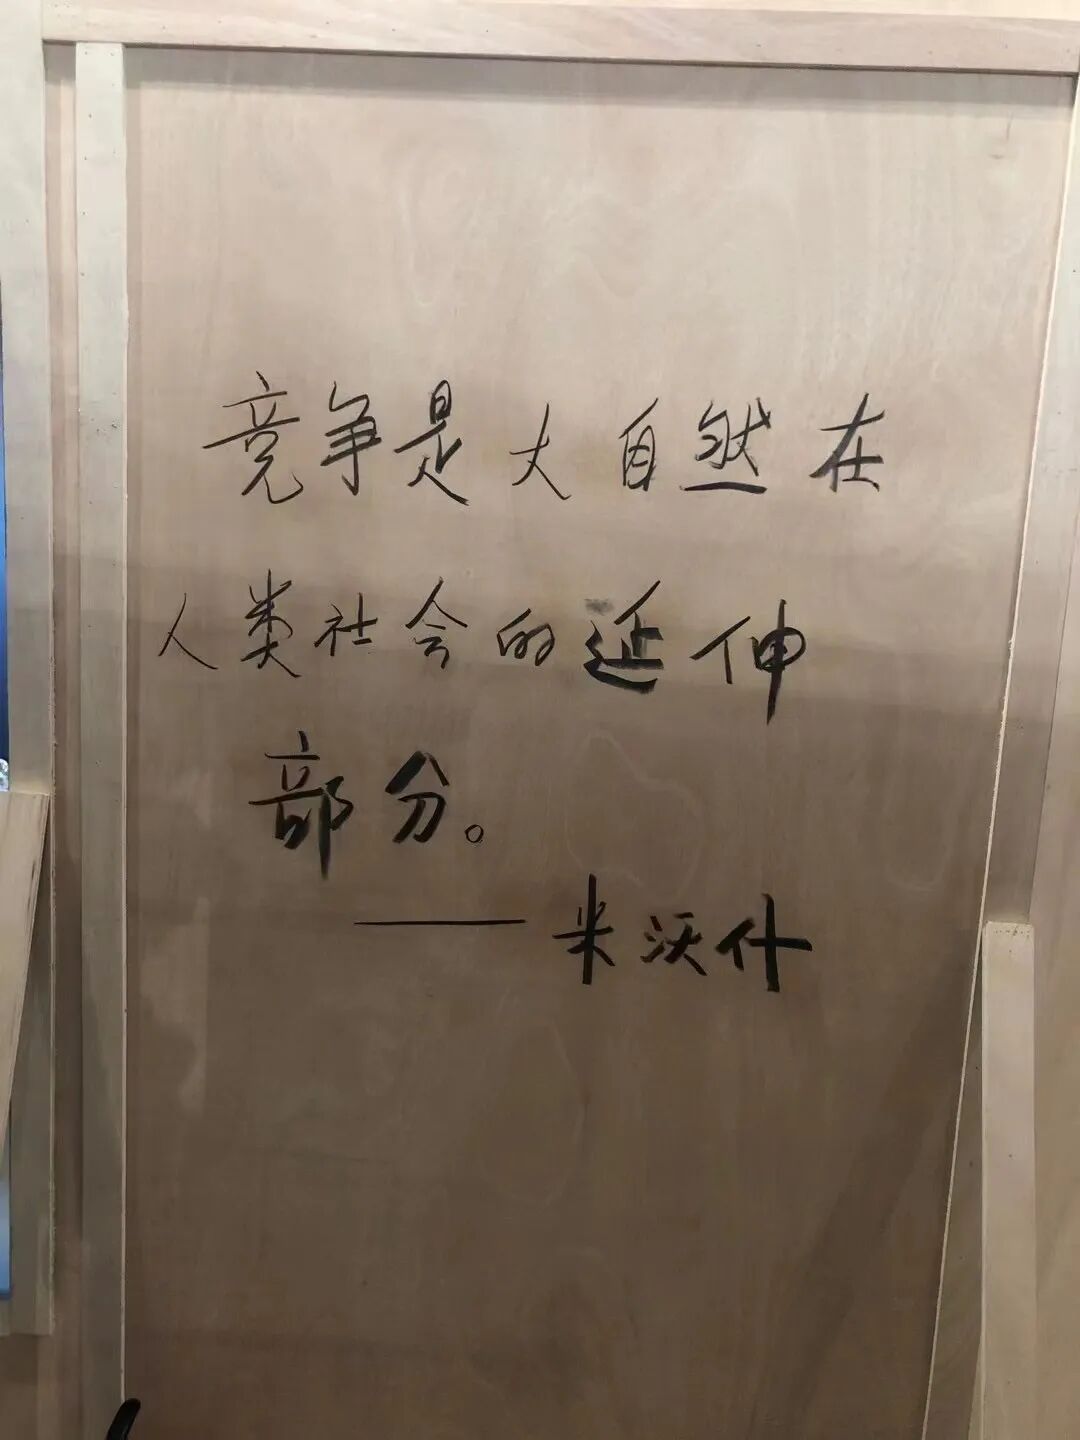 竞争是大自然在
人类社会的延伸
部分。
——米沃什